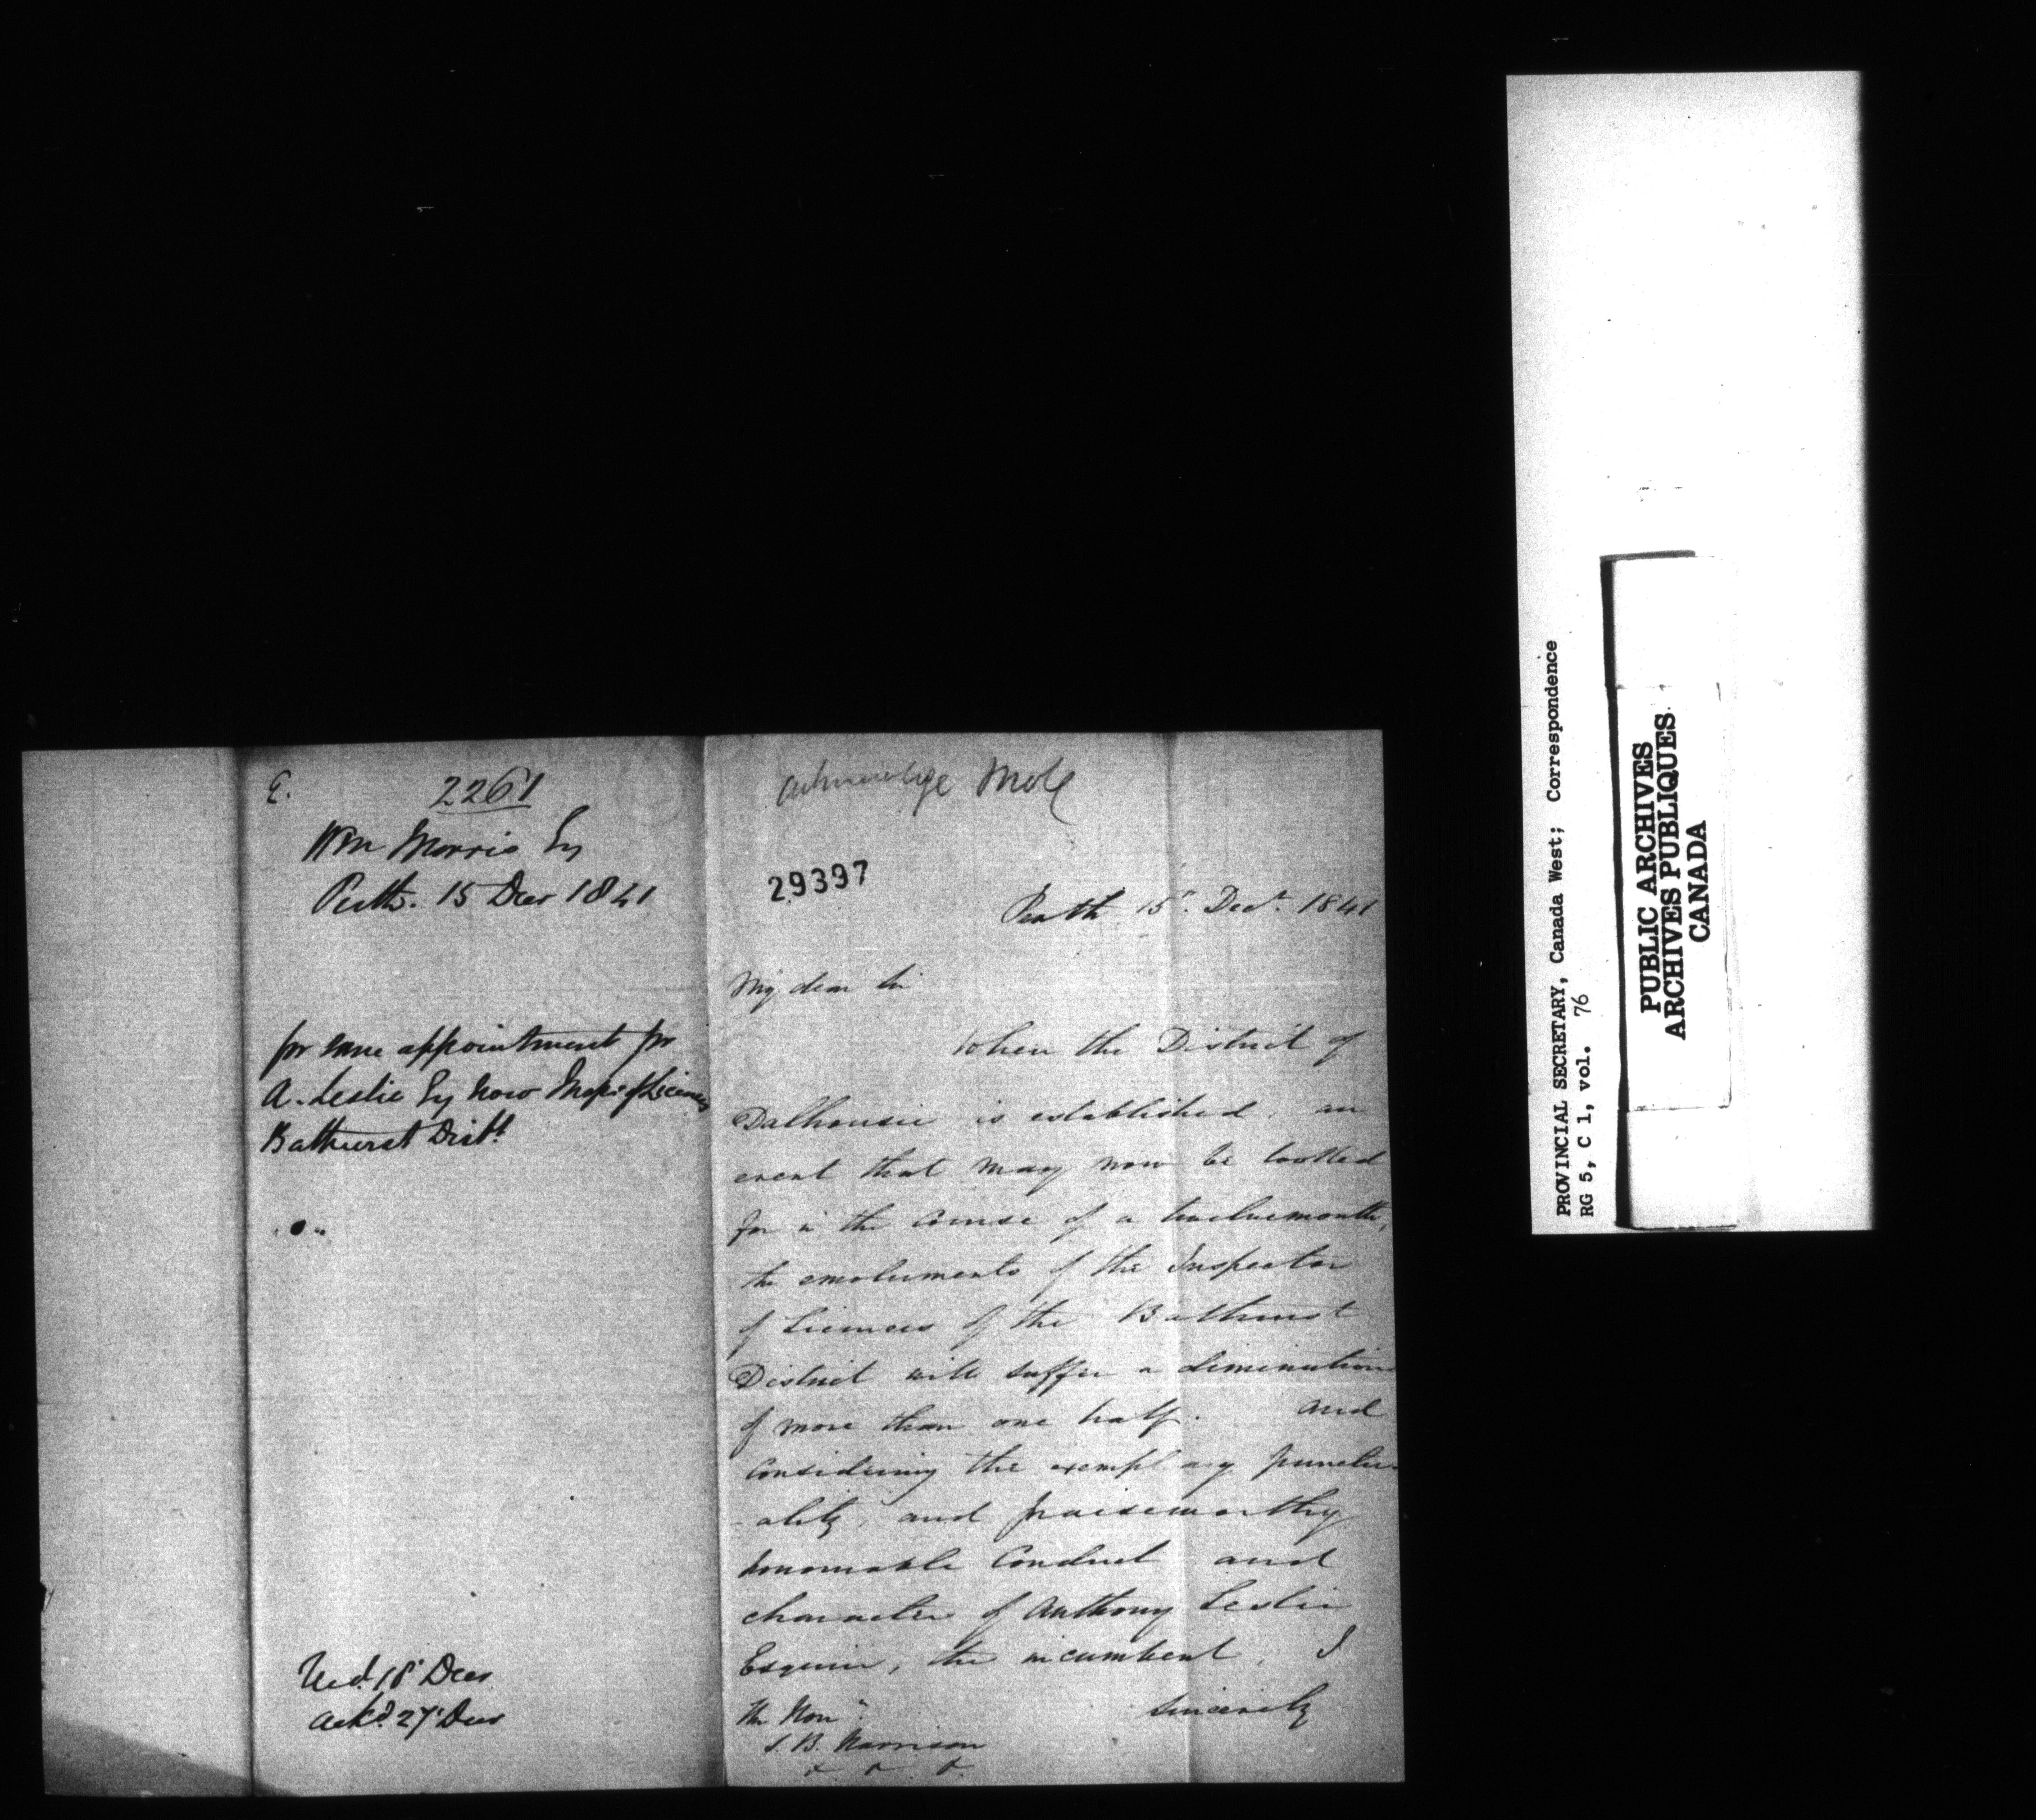 E. 2261
Wm Morris Esq
Perth. 15 Decr 1841
for some appointment for
A. Leslie Esq now Inspr of Licences
Bathurst Distt
Recd. 18 Decr
Ackd. 27 Decr
Acknowledge
29397
Perth 15th. Decr. 1841
My dear Sir
When the District of
Dalhousie is established, an
event that may now be looked
for in the course of a twelvemonth,
the emoluments of the Inspector
of Licences of the Bathurst
District will suffer a diminution
of more than one half. And
considering the exemplary punctu-
-ality, and praiseworthy
honourable conduct and
character of Anthony Leslie
Esquire, the incumbent, I
sincerely
The Honl.
S. B. Harrison
PROVINCIAL SECRETARY, Canada West; Correspondence
RG 5, C 1, vol. 76
PUBLIC ARCHIVES
ARCHIVES PUBLIQUES
CANADA